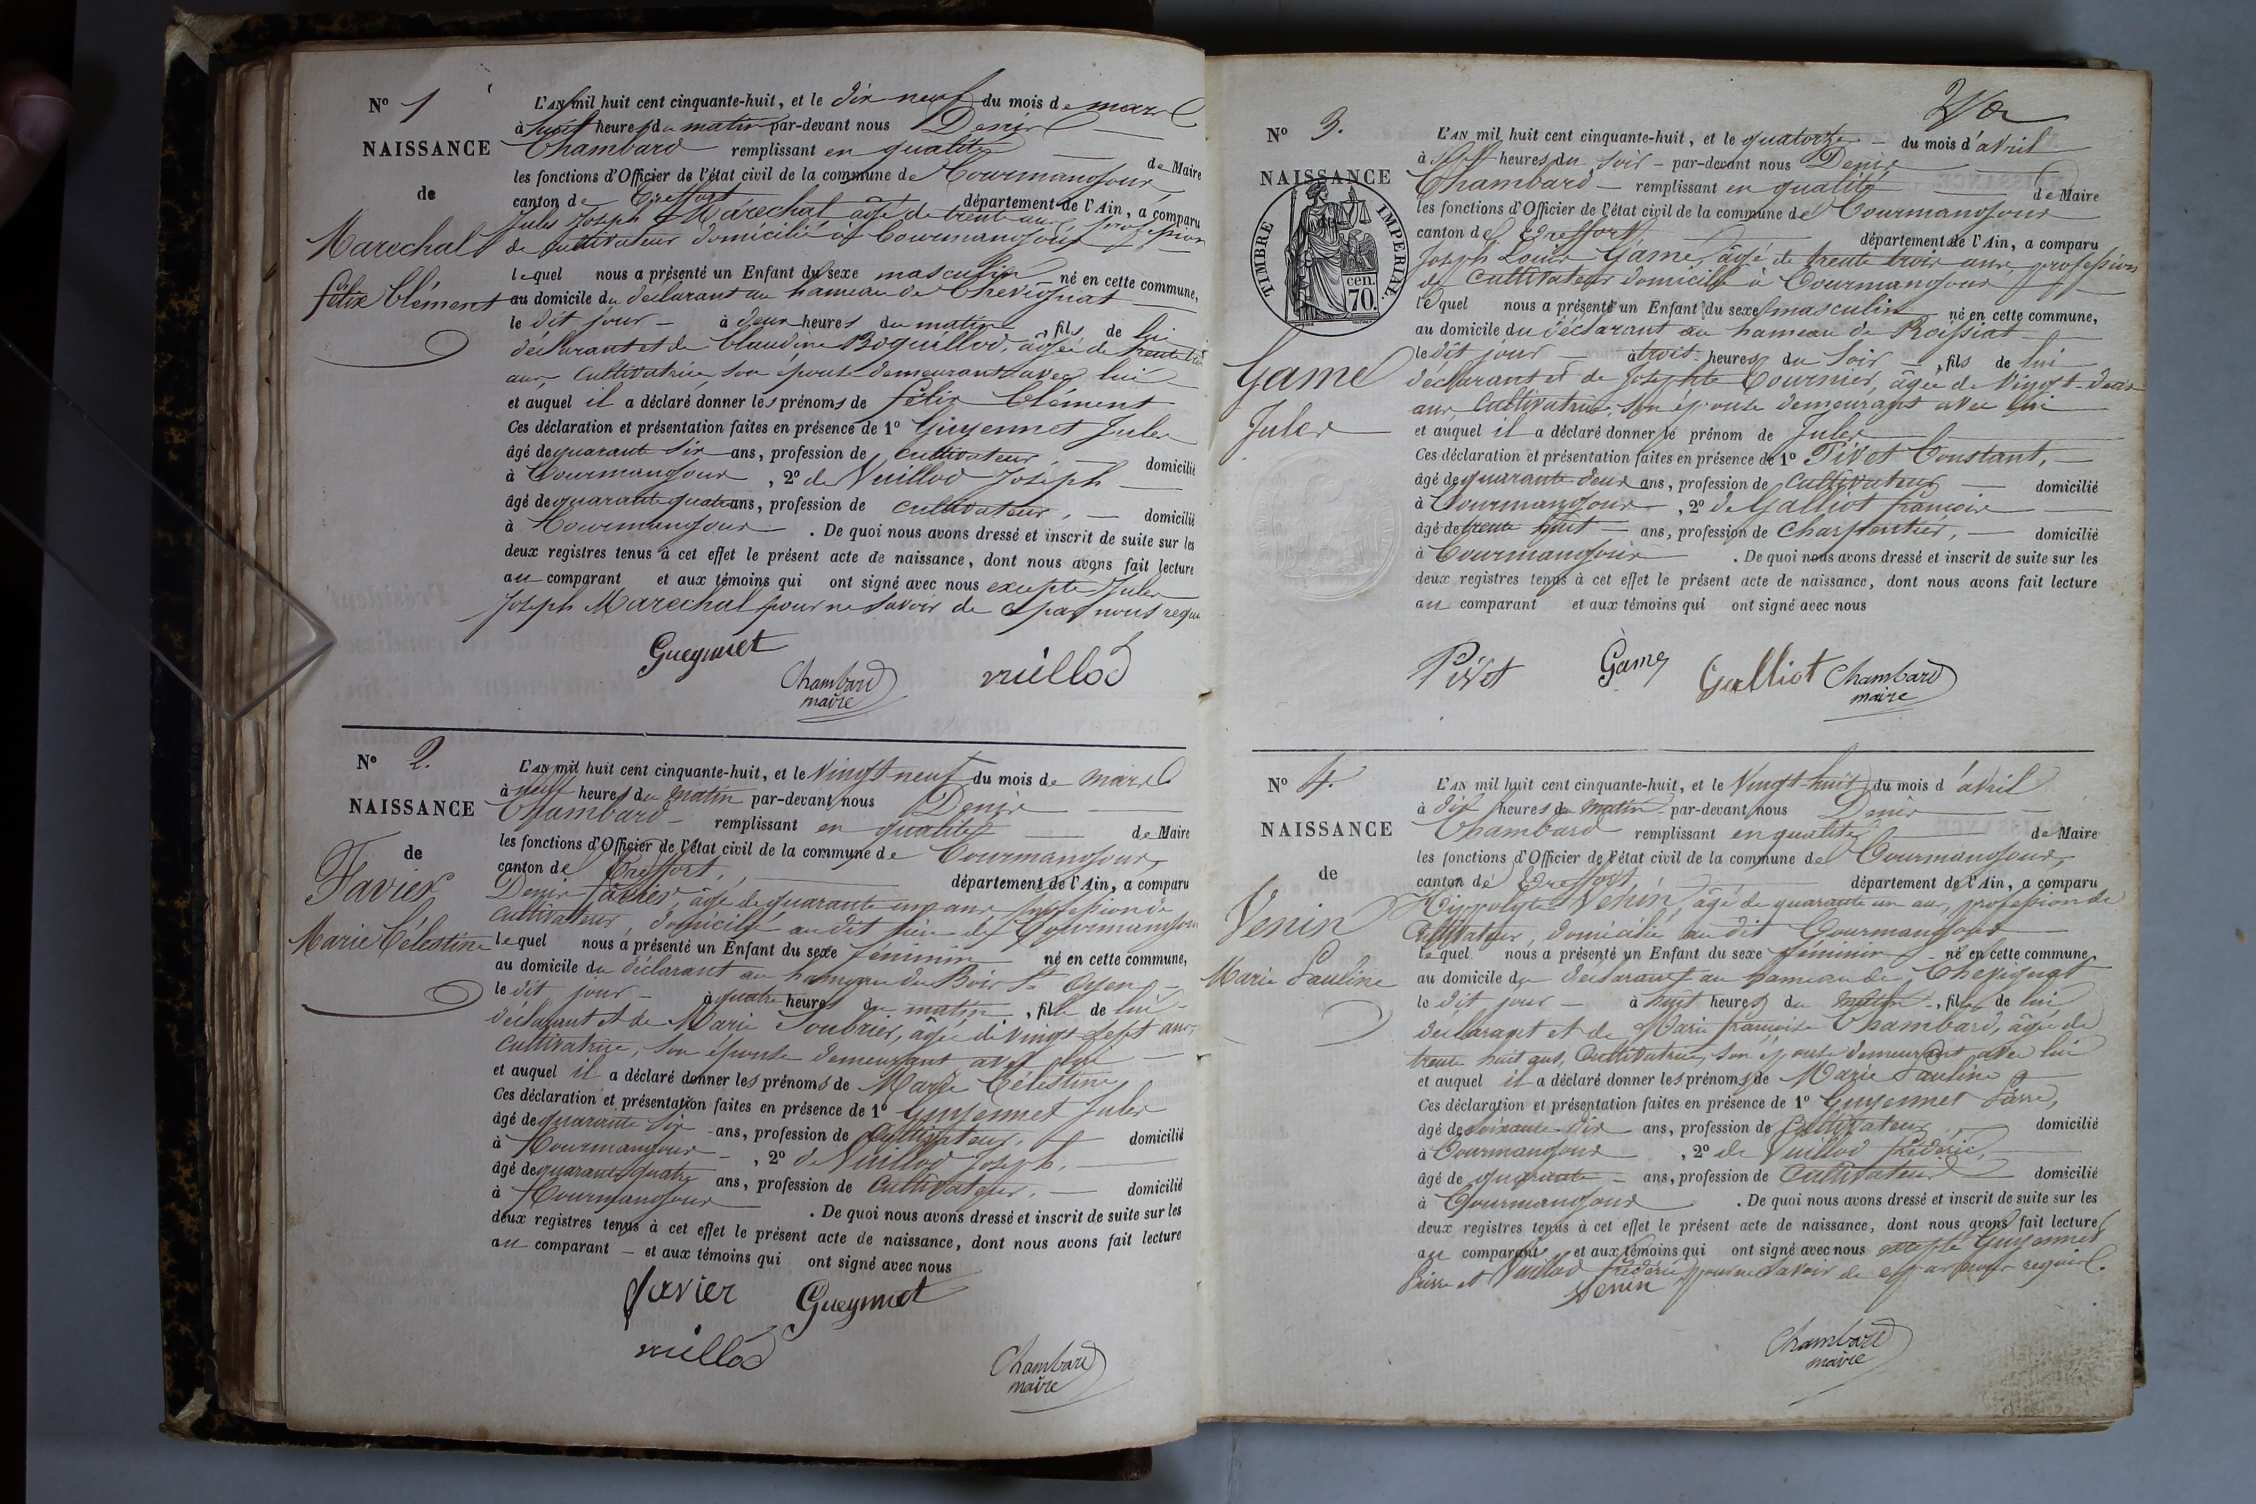 N° 1
NAISSANCE
de
Marechal
félix Clément
L'AN mil huit cent cinquante-huit, et le dix neuf du mois de mars
à huit heures du matin par-devant nous Denis
Chambard remplissant en qualité de Maire
les fonctions d'Officier de l'état civil de la commune de Courmangoux
canton de Treffort département de l'Ain, a comparu
Jules Joseph Maréchal âgé de trente ans profession
de cultivateur domicilié à Courmangoux
lequel nous a présenté un Enfant du sexe masculin né en cette commune,
au domicile du déclarant au hameau de Chevignat
le dit jour à deux heures du matin, fils de lui
déclarant et de Claudine Boquillod, âgée de trente
ans, cultivatrice, son épouse demeurant avec lui
et auquel il a déclaré donner les prénoms de félix Clément
Ces déclaration et présentation faites en présence de 1° Guyennet Jules
âgé de quarante six ans, profession de cultivateur, domicilié
à Courmangoux, 2° de Vuillod Joseph
âgé de quarante quatre ans, profession de cultivateur, domicilié
à Courmangoux. De quoi nous avons dressé et inscrit de suite sur les
deux registres tenus à cet effet le présent acte de naissance, dont nous avons fait lecture
au comparant et aux témoins qui ont signé avec nous excepté Jules
Joseph Marechal pour ne savoir de ce par nous requis
Gueynnet
Chambard
maire
vuillod
N° 2.
NAISSANCE
de
Favier
Marie Célestine
L'AN mil huit cent cinquante-huit, et le vingt neuf du mois de mars
à neuf heures du matin par-devant nous Denis
Chambard remplissant en qualité de Maire
les fonctions d'Officier de l'état civil de la commune de Courmangoux
canton de Treffort, département de l'Ain, a comparu
Denis favier, âgé de quarante un ans profession de
cultivateur, domicilié au dit lieu de Courmangoux
lequel nous a présenté un Enfant du sexe féminin né en cette commune,
au domicile du déclarant au hameau du Bois St Oyen
le dit jour à quatre heures du matin, fille de lui
déclarant et de Marie Soubrier, âgée de vingt sept ans,
cultivatrice, son épouse demeurant avec lui
et auquel il a déclaré donner les prénoms de Marie Célestine
Ces déclaration et présentation faites en présence de 1° Guyennet Jules
âgé de quarante six ans, profession de cultivateur, domicilié
à Courmangoux, 2° de Vuillod Joseph,
âgé de quarante quatre ans, profession de cultivateur, domicilié
à Courmangoux. De quoi nous avons dressé et inscrit de suite sur les
deux registres tenus à cet effet le présent acte de naissance, dont nous avons fait lecture
au comparant et aux témoins qui ont signé avec nous
favier Gueynnet
vuillod
Chambard
maire
N° 3.
NAISSANCE
TIMBRE IMPÉRIAL.
cen.
70.
Game
Jules
L'AN mil huit cent cinquante-huit, et le quatorze du mois d'avril
à sept heures du soir par-devant nous Denis
Chambard remplissant en qualité de Maire
les fonctions d'Officier de l'état civil de la commune de Courmangoux
canton de Treffort département de l'Ain, a comparu
Joseph Louis Game, âgé de trente trois ans, profession
de cultivateur domicilié à Courmangoux
lequel nous a présenté un Enfant du sexe masculin né en cette commune,
au domicile du déclarant au hameau de Roissiat
le dit jour à trois heures du soir, fils de lui
déclarant et de Josephte Cournier, âgée de vingt-deux
ans cultivatrice, son épouse demeurant avec lui
et auquel il a déclaré donner le prénom de Jules
Ces déclaration et présentation faites en présence de 1° Pivet Constant,
âgé de quarante deux ans, profession de cultivateur domicilié
à Courmangoux, 2° de Galliot francois
âgé de trente huit ans, profession de charpentier, domicilié
à Courmangoux. De quoi nous avons dressé et inscrit de suite sur les
deux registres tenus à cet effet le présent acte de naissance, dont nous avons fait lecture
au comparant et aux témoins qui ont signé avec nous
Pivet Game Galliot Chambard
maire
N° 4.
NAISSANCE
de
Venin
Marie Pauline
L'AN mil huit cent cinquante-huit, et le vingt-huit du mois d'avril
à dix heures du matin par-devant nous Denis
Chambard remplissant en qualité de Maire
les fonctions d'Officier de l'état civil de la commune de Courmangoux
canton de Treffort, département de l'Ain, a comparu
Hippolyte Venin, âgé de quarante un ans, profession de
cultivateur, domicilié au dit Courmangoux
lequel nous a présenté un Enfant du sexe féminin né en cette commune,
au domicile du declarant au hameau de Chevignat
le dit jour à huit heures du matin, fille de lui
declarant et de Marie françoise Chambard, âgée de
trente huit ans, Cultivatrice, son épouse demeurant avec lui
et auquel il a déclaré donner les prénoms de Marie Pauline
Ces déclaration et présentation faites en présence de 1° Guyennet Pierre,
âgé de soixante-dix ans, profession de cultivateur, domicilié
à Courmangoux, 2° de Vuillod frédéric,
âgé de quarante ans, profession de cultivateur domicilié
à Courmangoux. De quoi nous avons dressé et inscrit de suite sur les
deux registres tenus à cet effet le présent acte de naissance, dont nous avons fait lecture
au comparant et aux témoins qui ont signé avec nous excepté Guyennet
Pierre et Vuillod frédéric pour ne savoir de ce par nous requis.
Venin
Chambard
maire